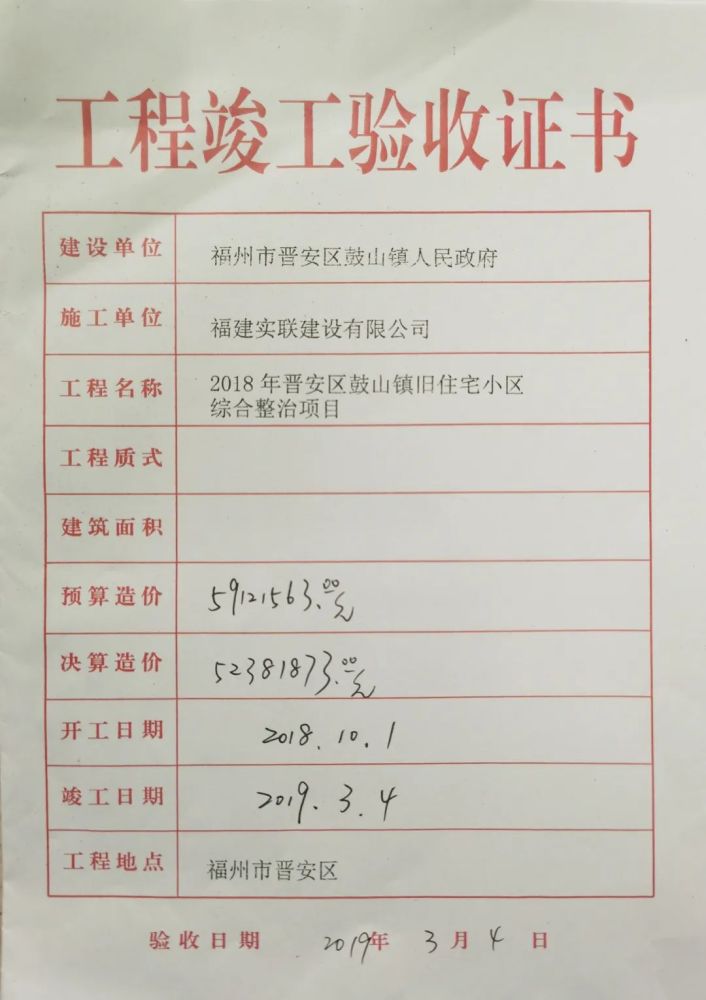 工程竣工验收证书
建设单位 福州市晋安区鼓山镇人民政府
施工单位 福建实联建设有限公司
工程名称 2018年晋安区鼓山镇旧住宅小区
综合整治项目
工程质式
建筑面积
预算造价 59121563.00元
决算造价 52381873.00元
开工日期 2018.10.1
竣工日期 2019.3.4
工程地点 福州市晋安区
验收日期 2019年3月4日